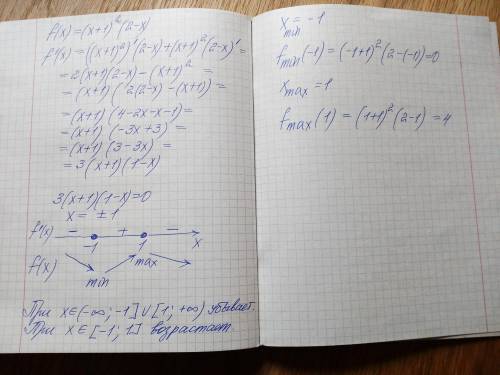 f(x)=(x+1)²(2-x)
f'(x)=((x+1)²)'(2-x)+(x+1)²(2-x)'=
=2(x+1)(2-x)-(x+1)²=
=(x+1)(2(2-x)-(x+1))=
=(x+1)(4-2x-x-1)=
=(x+1)(-3x+3)=
=(x+1)(3-3x)=
=3(x+1)(1-x)
3(x+1)(1-x)=0
x=±1
f'(x) - + -
-1 1 x
f(x) min max
При x∈(-∞;-1]∪[1;+∞) убывает.
При x∈[-1;1] возрастает.
x min = -1
f min (-1)=(-1+1)²(2-(-1))=0
x max =1
f max (1)=(1+1)²(2-1)=4